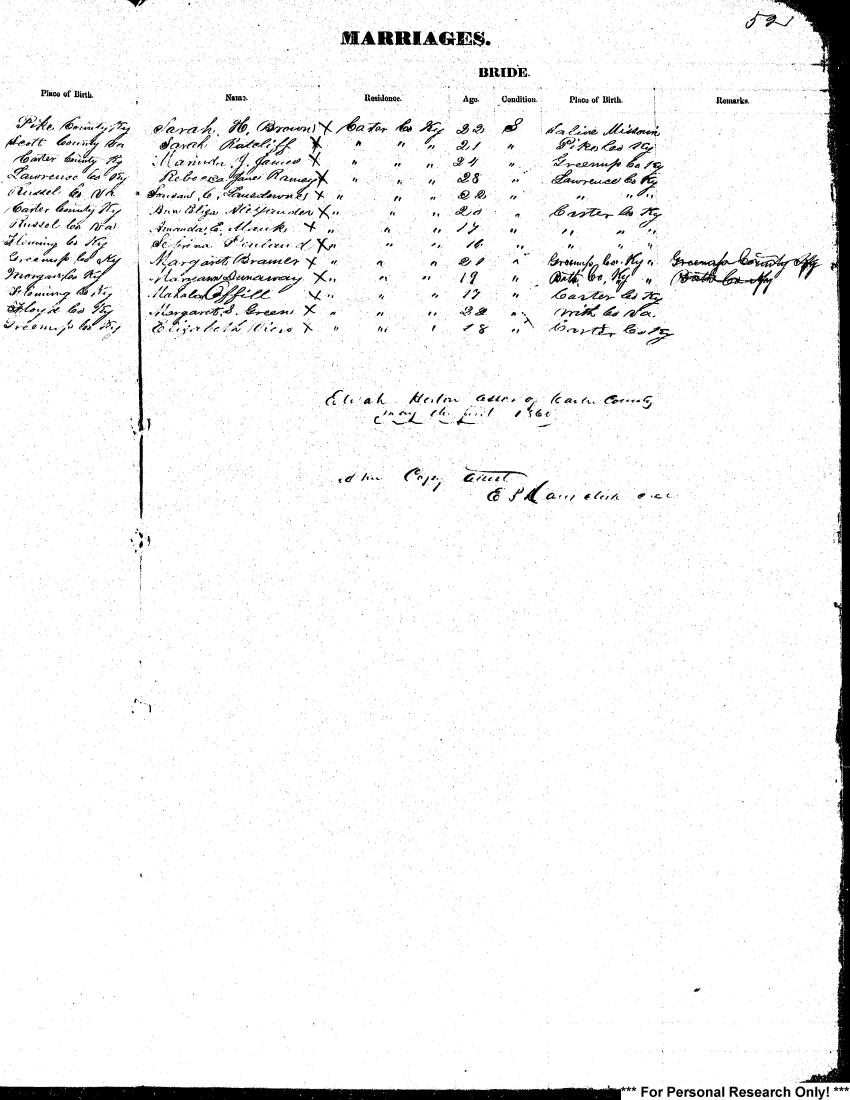 521
MARRIAGES.
BRIDE.
Place of Birth. Name. Residence. Age. Condition. Place of Birth. Remarks.
Pike County Ky Sarah H. Brown X Cater Co Ky 22 S Saline Missouri
Scott County Va Sarah Ratcliff X " " " 21 " Pike Co Ky
Carter County Ky J. James X " " " 24 " Greenup Co Ky
Lawrence Co Ky Rebecca Jane Ramey X " " " 28 " Lawrence Co Ky
Russel Co Va C. X " " " 22 " " " "
Carter County Ky Ann Eliza Alexander X " " " 20 " Carter Co Ky
Russel Co Va Amanda E. Mauk X " " " 17 " " " "
Fleming Co Ky Penland X " " " 16 " " " "
Greenup Co Ky Margaret Bramer X " " " 21 " Greenup Co. Ky " Greenup County Ky
Morgan Co Ky Dunaway X " " " 19 " Bath Co, Ky " Bath Co Ky
Fleming Co, Ky Mahala X " " " 17 " Carter Co Ky
Floyd Co Ky Margaret S. Green X " " " 22 " With Co Va.
Greenup Co Ky Elizabeth X " " " 18 " Carter Co Ky
of Carter County
may the 1860
Copy
*** For Personal Research Only! ***